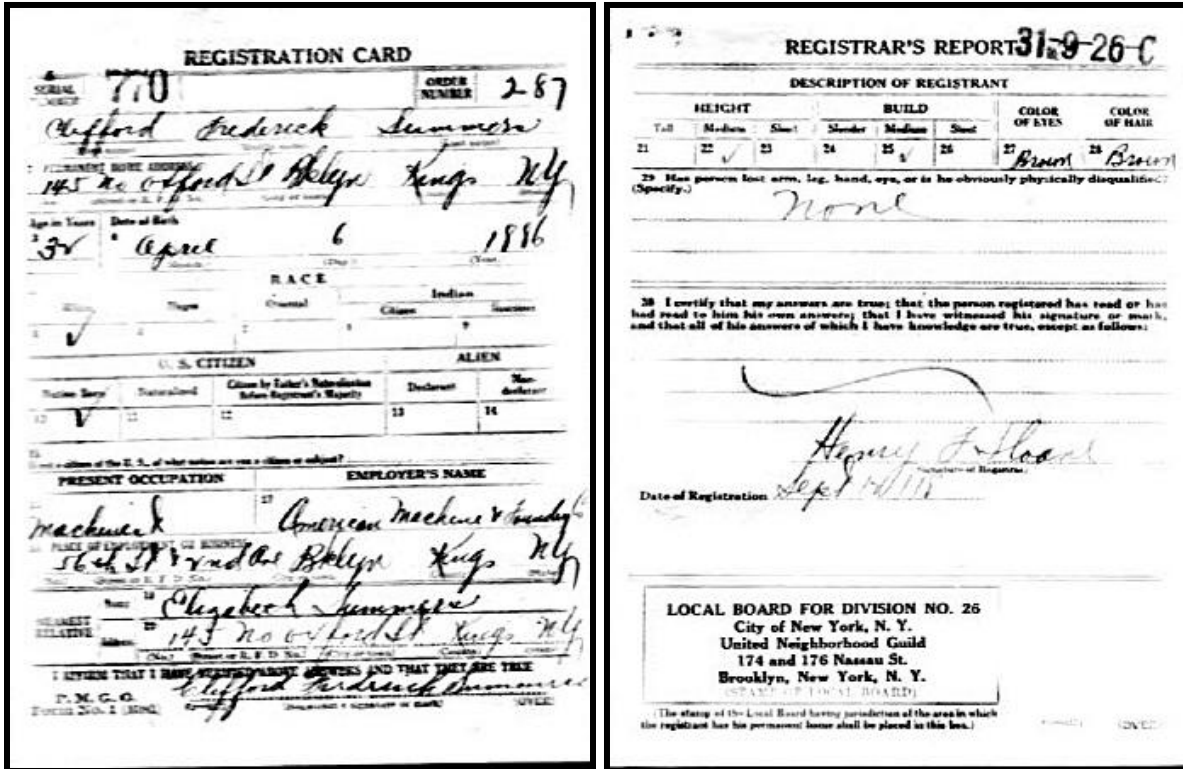 REGISTRATION CARD
SERIAL NUMBER 770 ORDER NUMBER 287
Clifford Frederick Summers
PERMANENT HOME ADDRESS
145 No Oxford St Bklyn Kings NY
Age in Years Date of Birth
32 April 6 1886
(Day) (Year)
RACE
White Negro Oriental Indian
Citizen Noncitizen
5 ✓ 6 7 8 9
U. S. CITIZEN ALIEN
Native Born Naturalized Citizen by Father's Naturalization Before Registrant's Majority Declarant Non-declarant
10 ✓ 11 12 13 14
15
If not a citizen of the U. S., of what nation are you a citizen or subject?
PRESENT OCCUPATION EMPLOYER'S NAME
17
Machinist American Machine & Foundry Co
PLACE OF EMPLOYMENT OR BUSINESS
56th St & 2nd Ave Bklyn Kings NY
NEAREST RELATIVE
Name 19 Elizabeth Summers
Address 20 145 No Oxford St Kings NY
(No.) (Street or R. F. D. No.) (City or town) (County) (State)
I AFFIRM THAT I HAVE VERIFIED ABOVE ANSWERS AND THAT THEY ARE TRUE
P. M. G. O.
Form No. 1 (Red) Clifford Fredrick Summers (OVER)
REGISTRAR'S REPORT 31-9-26-C
DESCRIPTION OF REGISTRANT
HEIGHT BUILD COLOR OF EYES COLOR OF HAIR
Tall Medium Short Slender Medium Stout
21 22 ✓ 23 24 25 ✓ 26 27 Brown 28 Brown
29 Has person lost arm, leg, hand, eye, or is he obviously physically disqualified?
(Specify.)
None
30 I certify that my answers are true; that the person registered has read or has
had read to him his own answers; that I have witnessed his signature or mark,
and that all of his answers of which I have knowledge are true, except as follows:
Henry F Sloane
(Signature of Registrar)
Date of Registration Sept 12/1918
LOCAL BOARD FOR DIVISION NO. 26
City of New York, N. Y.
United Neighborhood Guild
174 and 176 Nassau St.
Brooklyn, New York, N. Y.
(STAMP OF LOCAL BOARD)
(The stamp of the Local Board having jurisdiction of the area in which
the registrant has his permanent home shall be placed in this box.)
(OVER)